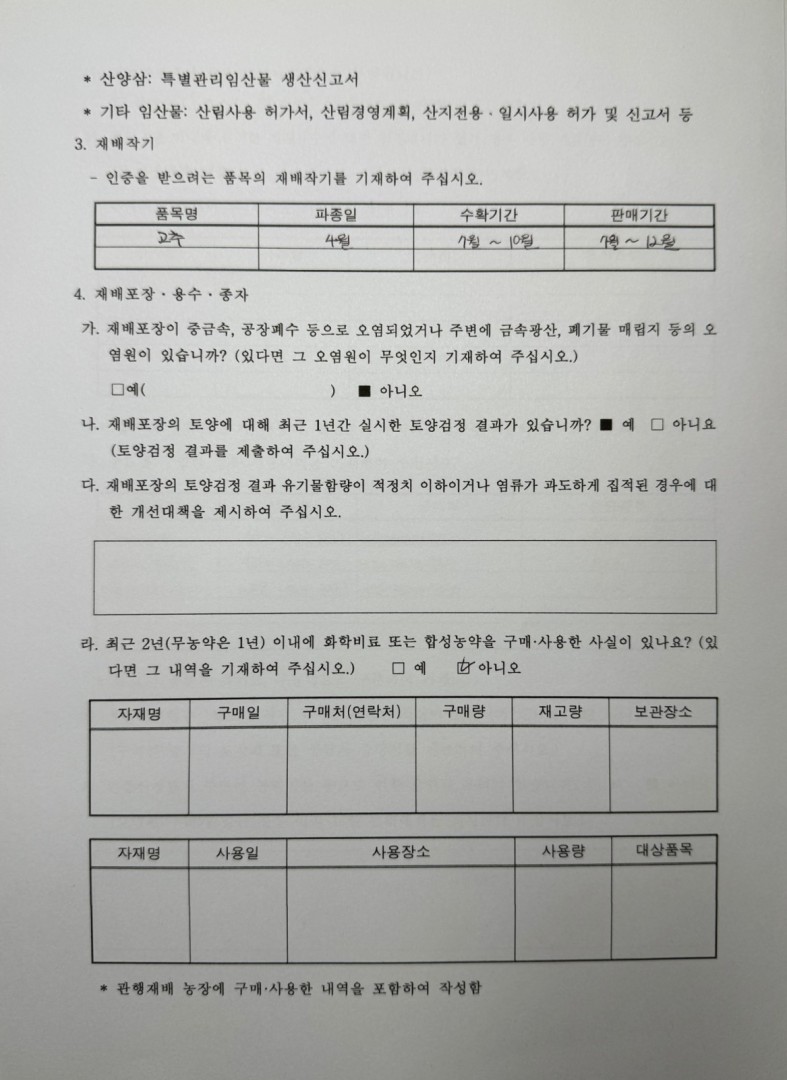 * 산양삼: 특별관리임산물 생산신고서
* 기타 임산물: 산림사용 허가서, 산림경영계획, 산지전용·일시사용 허가 및 신고서 등
3. 재배작기
- 인증을 받으려는 품목의 재배작기를 기재하여 주십시오.
품목명 파종일 수확기간 판매기간
고추 4월 7월 ~ 10월 7월 ~ 12월
4. 재배포장·용수·종자
가. 재배포장이 중금속, 공장폐수 등으로 오염되었거나 주변에 금속광산, 폐기물 매립지 등의 오
염원이 있습니까? (있다면 그 오염원이 무엇인지 기재하여 주십시오.)
□예( ) ■ 아니오
나. 재배포장의 토양에 대해 최근 1년간 실시한 토양검정 결과가 있습니까? ■ 예 □ 아니요
(토양검정 결과를 제출하여 주십시오.)
다. 재배포장의 토양검정 결과 유기물함량이 적정치 이하이거나 염류가 과도하게 집적된 경우에 대
한 개선대책을 제시하여 주십시오.
라. 최근 2년(무농약은 1년) 이내에 화학비료 또는 합성농약을 구매·사용한 사실이 있나요? (있
다면 그 내역을 기재하여 주십시오.) □ 예 ☑ 아니오
자재명 구매일 구매처(연락처) 구매량 재고량 보관장소
자재명 사용일 사용장소 사용량 대상품목
* 관행재배 농장에 구매·사용한 내역을 포함하여 작성함